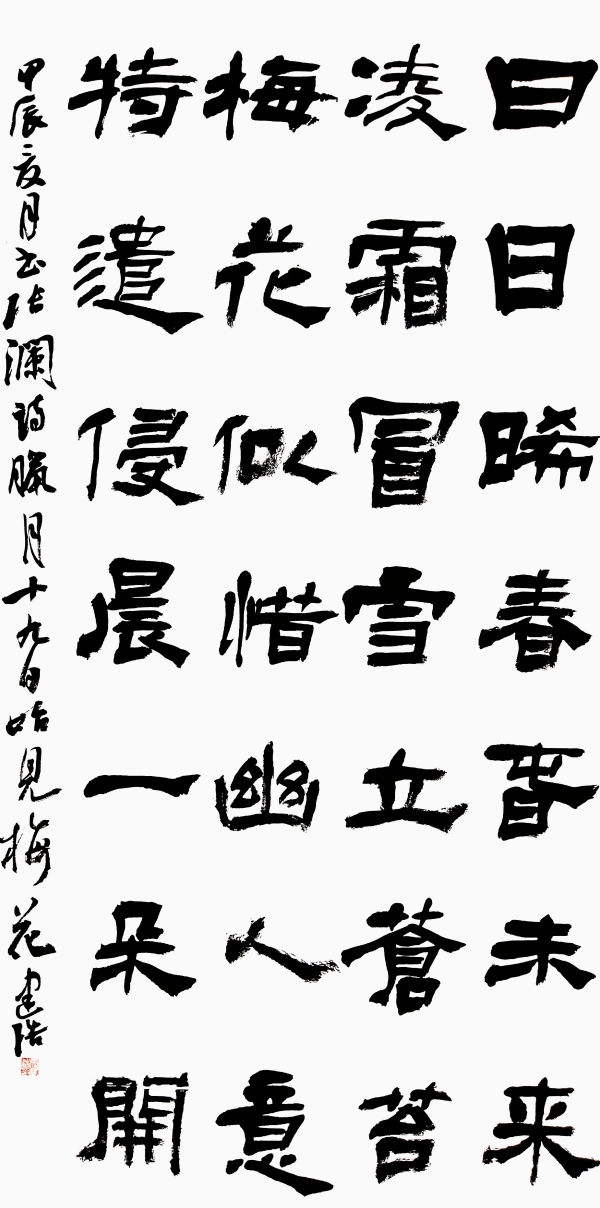 日日晞春音未来
凌霜冒雪立蒼苔
梅花似惜幽人意
特遣侵晨一朵開
甲辰夏月书张瀾诗臘月十九日始見梅花建浩